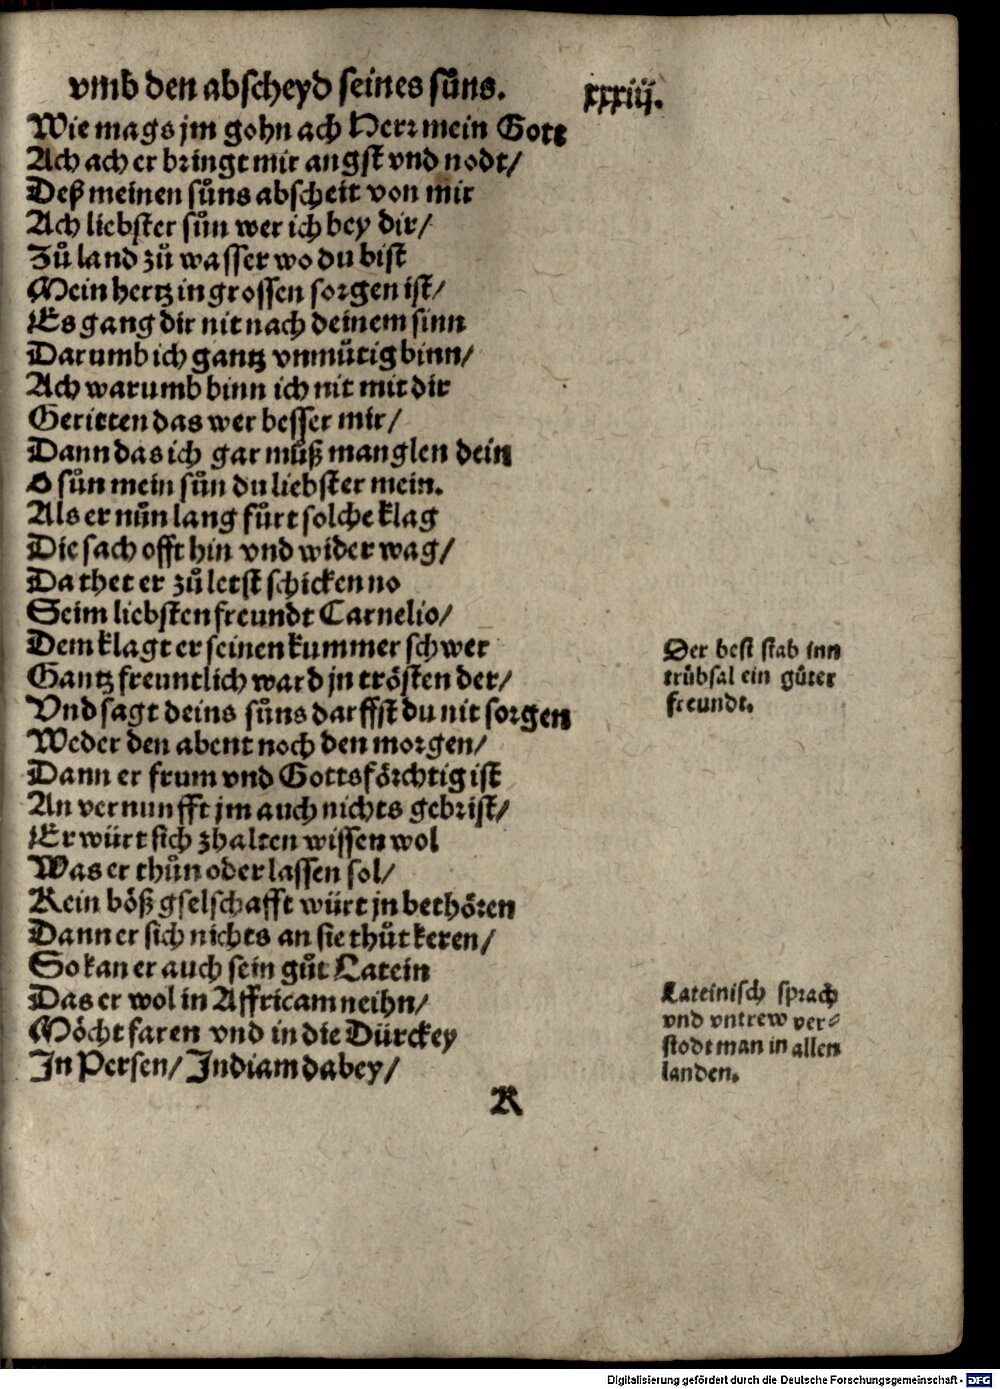 vmb den abscheyd seines sůns.
xxxiij.
Wie mags jm gohn ach Herr mein Gott
Ach ach er bringt mir angst vnd nodt/
Deß meinen sůns abscheit von mir
Ach liebster sůn wer ich bey dir/
Zů land zů wasser wo du bist
Mein hertz in grossen sorgen ist/
Es gang dir nit nach deinem sinn
Darumb ich gantz vnmůtig binn/
Ach warumb binn ich nit mit dir
Geritten das wer besser mir/
Dann das ich gar můß manglen dein
O sůn mein sůn du liebster mein.
Als er nůn lang fůrt solche klag
Die sach offt hin vnd wider wag/
Da thet er zů letst schicken no
Seim liebsten freundt Carnelio/
Dem klagt er seinen kummer schwer
Gantz freuntlich ward jn trösten der/
Vnd sagt deins sůns darffst du nit sorgen
Weder den abent noch den morgen/
Dann er frum vnd Gottsförchtig ist
An vernunfft jm auch nichts gebrist/
Er würt sich zhalten wissen wol
Was er thůn oder lassen sol/
Kein böß gselschafft würt jn bethören
Dann er sich nichts an sie thůt keren/
So kan er auch sein gůt Latein
Das er wol in Affricam neihn/
Möcht faren vnd in die Dürckey
In Persen/ Indiam dabey/
K
Der best stab inn
trůbsal ein gůter
freundt.
Lateinisch sprach
vnd vntrew ver-
stodt man in allen
landen.
Digitalisierung gefördert durch die Deutsche Forschungsgemeinschaft - DFG